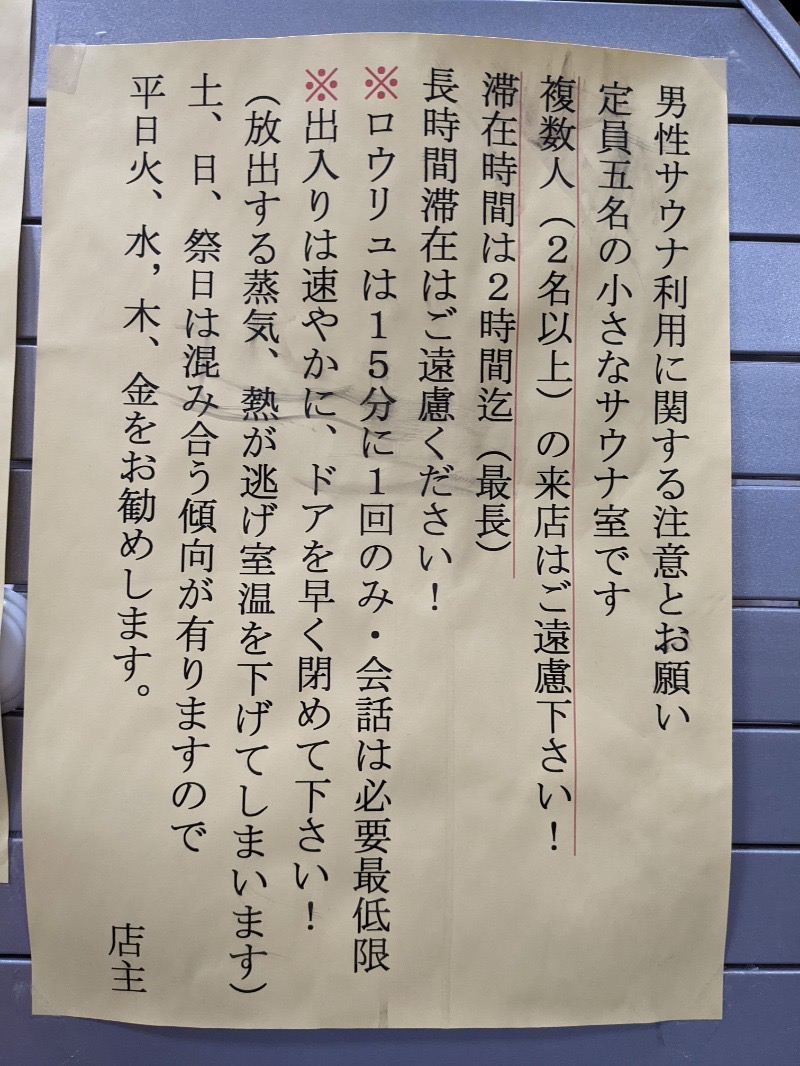 男性サウナ利用に関する注意とお願い
定員五名の小さなサウナ室です
複数人（２名以上）の来店はご遠慮下さい！
滞在時間は２時間迄（最長）
長時間滞在はご遠慮ください！
※ロウリュは１５分に１回のみ・会話は必要最低限
※出入りは速やかに、ドアを早く閉めて下さい！
（放出する蒸気、熱が逃げ室温を下げてしまいます）
土、日、祭日は混み合う傾向が有りますので
平日火、水，木、金をお勧めします。
店主